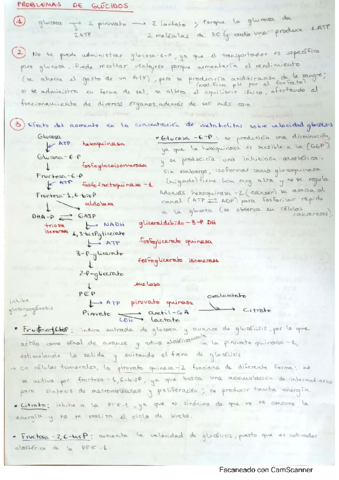 PROBLEMAS DE GLÚCIDOS
① glucosa → 2 piruvato → 2 lactato ; Porque la glucosa da
2ATP 2 moléculas de 3C y cada una produce 2 ATP
② No se puede administrar glucosa-6-P, ya que el transportador es específico
para glucosa. Puede resultar ventajoso porque aumentaría el rendimiento
(se ahorra el gasto de un ATP), pero se produciría acidificación de la sangre;
si se administra en forma de sal, se altera el equilibrio iónico, afectando al
funcionamiento de diversos órganos, además de ser más caro
③ Efecto del aumento en la concentración de metabolitos sobre velocidad glucólisis
Glucosa
↓ ATP hexoquinasa
Glucosa-6-P
↓ fosfoglucoisomerasa
Fructosa-6-P
↓ ATP fosfofructoquinasa-1
Fructosa-1,6-bisP
↓ aldolasa
DHA-P ⇄ GA3P
triosa isomerasa
↓ NADH gliceraldehido-3-P DH
1,3-bisPglicerato
↓ ATP fosfoglicerato quinasa
3-P-glicerato
↓ fosfoglicerato isomerasa
2-P-glicerato
↓ enolasa
PEP
↓ ATP piruvato quinasa
oxalacetato
Piruvato → acetil-CoA → Citrato
LDH lactato
inhibe gluconeogénesis
• Glucosa-6-P: se produciría una disminución,
ya que la hexoquinasa es sensible a la [G6P]
y se produciría una inhibición alostérica.
Sin embargo, isoformas como glucoquinasa
(hígado) tiene Km muy alta y no se regula
Además hexoquinasa-2 (cáncer) se asocia al
canal (ATP ⇄ ADP) para fosforilar rápido
a la glucosa (se observa en células
cancerosas)
• Fru-1,6-bisP: indica entrada de glucosa y avance de glucólisis, por lo que
actúa como señal de avance y activa alostéricamente a la piruvato quinasa-2,
estimulando la salida y evitando el freno de glucólisis
→ En células tumorales, la piruvato quinasa-2 funciona de diferente forma: no
se activa por fructosa-1,6-bisP, ya que busca una acumulación de intermediarios
para síntesis de macromoléculas y proliferación; se produce mucha energía
• Citrato: inhibe a la PFK-1, ya que es sinónimo de que no se consume la
energía y no se realiza el ciclo de Krebs.
• Fructosa-2,6-bisP: aumenta la velocidad de glucólisis, puesto que es activador
alostérico a la PFK-1.
Escaneado con CamScanner